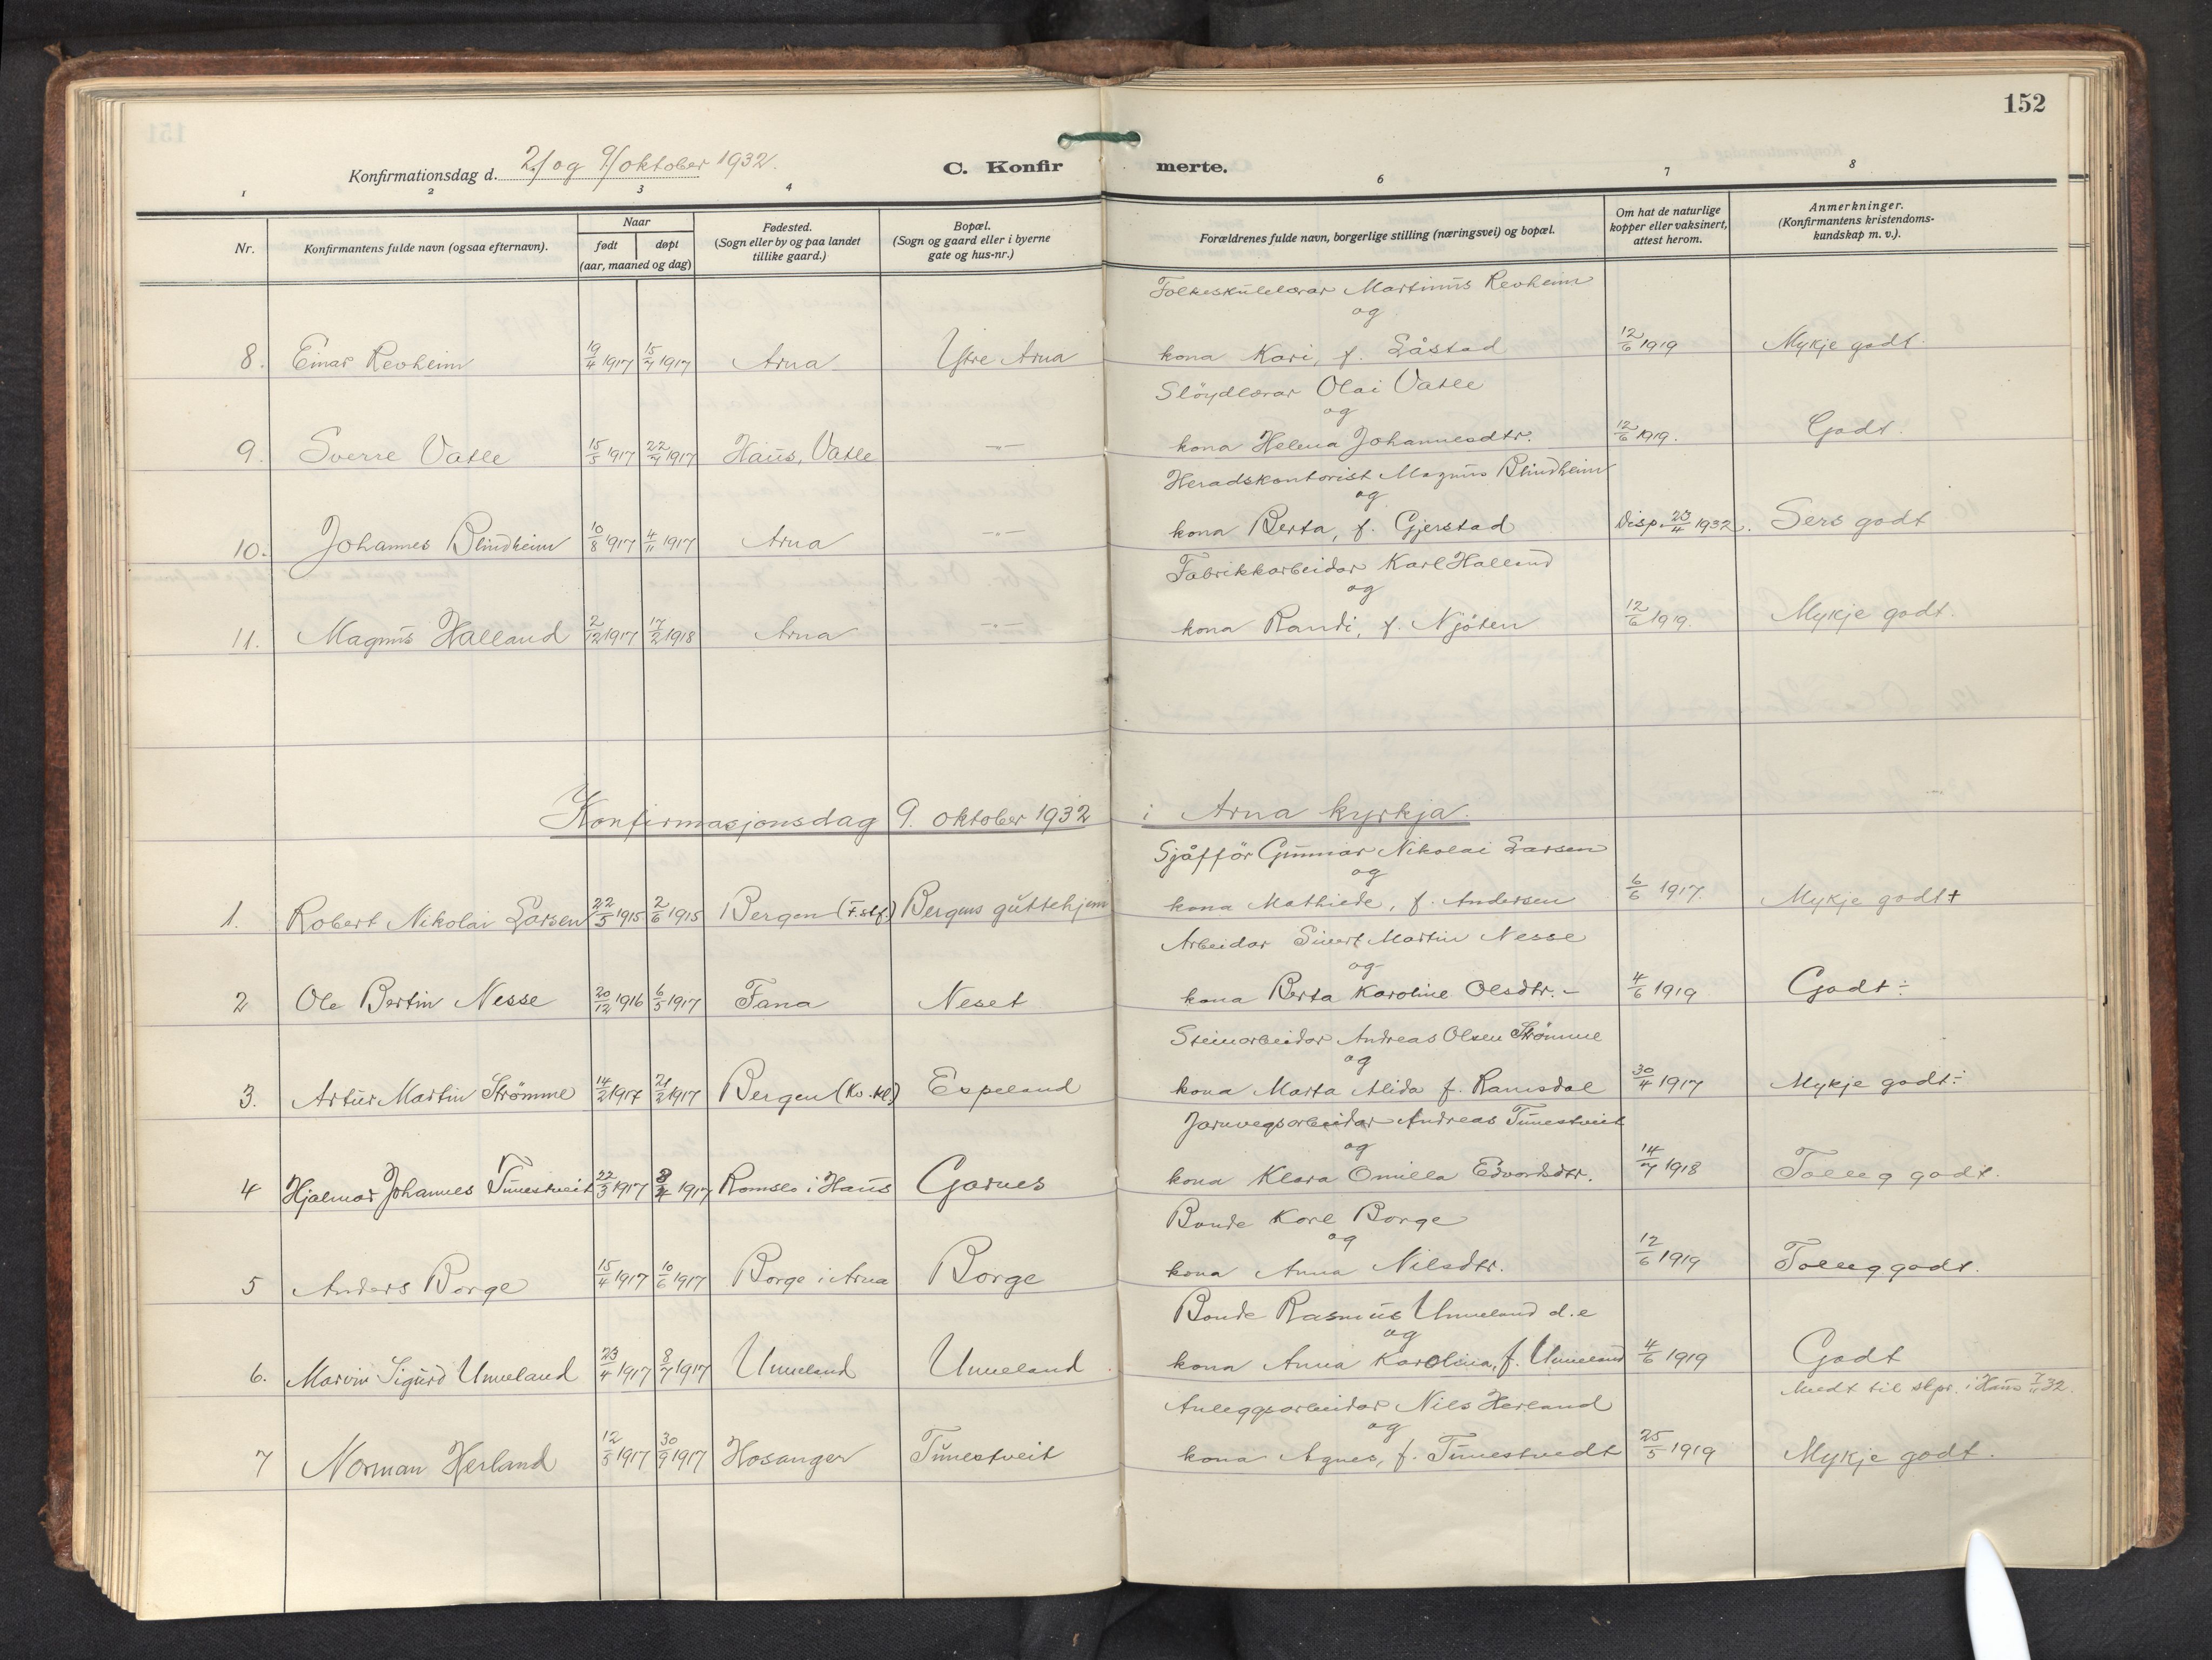 152
Konfirmationsdag d. 2/ og 9/ oktober 1932.
C. Konfirmerte.
1 2 3 4 6 7 8
Nr.
Konfirmantens fulde navn (ogsaa efternavn).
Naar
født døpt
(aar, maaned og dag)
Fødested.
(Sogn eller by og paa landet
tillike gaard.)
Bopæl.
(Sogn og gaard eller i byerne
gate og hus-nr.)
Forældrenes fulde navn, borgerlige stilling (næringsvei) og bopæl.
Om hat de naturlige
kopper eller vaksinert,
attest herom.
Anmerkninger.
(Konfirmantens kristendoms-
kundskap m. v.).
Folkeskulelærar Martinus Revheim
og
8. Einar Revheim 19/4 1917 15/7 1917 Arna Ytre Arna kona Kari, f. Låstad 12/6 1919 Mykje godt.
Slöydlærar Olai Vatle
og
9. Sverre Vatle 15/5 1917 22/7 1917 Haus, Vatle —"— kona Helena Johannesdtr. 12/6 1919. Godt.
Heradskontorist Magnus Blindheim
og
10. Johannes Blindheim 10/8 1917 4/11 1917 Arna —"— kona Berta, f. Gjerstad Disp. 23/4 1932. Sers godt
Fabrikkarbeidar Karl Halland
og
11. Magnus Halland 2/12 1917 17/2 1918 Arna —"— kona Randi, f. Njöten 12/6 1919. Mykje godt.
Konfirmasjonsdag 9. oktober 1932 i Arna kyrkja.
Sjåfför Gunnar Nikolai Larsen
og
1. Robert Nikolai Larsen 22/5 1915 2/6 1915 Bergen (F.stf.) Bergens guttehjem kona Mathilde, f. Andersen 6/6 1917. Mykje godt +
Arbeidar Sivert Martin Nesse
og
2 Ole Bertin Nesse 20/12 1916 6/5 1917 Fana Neset kona Berta Karoline Olsdtr. - 4/6 1919 Godt ÷
Steinarbeidar Andreas Olsen Strömme
og
3. Artur Martin Strömme 14/2 1917 21/2 1917 Bergen (Kv.kl) Espeland kona Marta Alida f. Ramsdal 30/4 1917 Mykje godt ÷
Jarnvegsarbeidar Andreas Tunestveit
og
4 Hjalmar Johannes Tunestveit 22/3 1917 8/4 1917 Romslo i Haus Garnes kona Klara Omilla Edvardsdtr. 14/7 1918 Tolleg godt.
Bonde Karl Borge
og
5 Anders Borge 15/4 1917 10/6 1917 Borge i Arna Borge kona Anna Nilsdtr. 12/6 1919 Tolleg godt.
Bonde Rasmus Unneland d.e
og
6. Marvin Sigurd Unneland 23/4 1917 8/7 1917 Unneland Unneland kona Anna Karolina, f. Unneland 4/6 1919 Godt
Meldt til skpr. i Haus 7/11 32.
Anleggsarbeidar Nils Herland
og
7 Norman Herland 12/5 1917 30/9 1917 Hosanger Tunestveit kona Agnes, f. Tunestvedt 25/5 1919 Mykje godt.